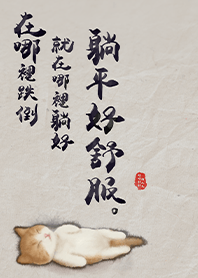 在哪裡跌倒
就在哪裡躺好
躺平好舒服。